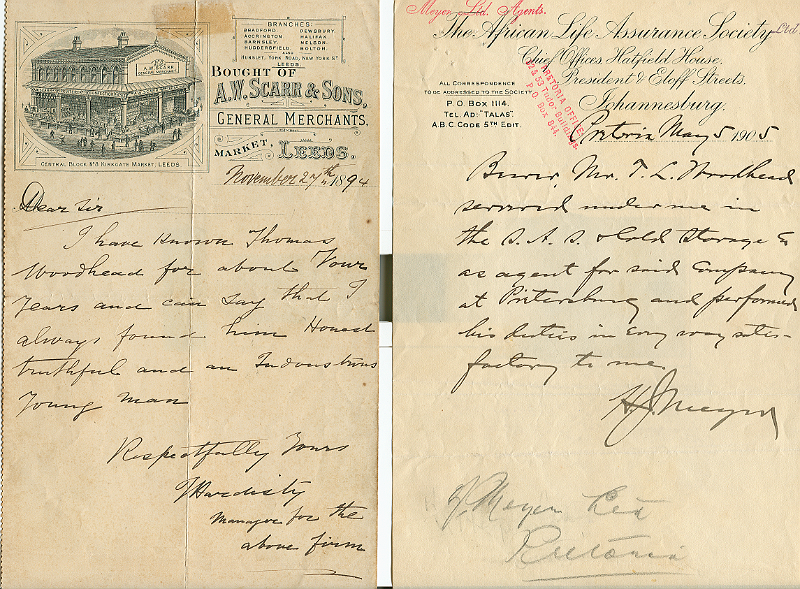 BRANCHES:
BRADFORD. DEWSBURY.
ACCRINGTON HALIFAX
BARNSLEY. NELSON.
HUDDERSFIELD. BOLTON.
ALSO
HUNSLET, YORK ROAD, NEW YORK ST
LEEDS
A.W. SCARR
GENERAL MERCHANTS
BOUGHT OF
A.W. SCARR & SONS,
GENERAL MERCHANTS.
MARKET, LEEDS.
CENTRAL BLOCK KIRKGATE MARKET, LEEDS.
November 27th 1894
Dear Sir
I have known Thomas
Woodhead for about Four
Years and can say that I
always found him Honest
truthful and an Industrious
Young Man
Respectfully Yours
Manager for the
above firm
Meyer Ltd. Agents.
The African Life Assurance Society Ltd
Chief Offices, Hatfield House,
President & Eloff Streets.
Johannesburg.
ALL CORRESPONDENCE
TO BE ADDRESSED TO THE SOCIETY
P.O. BOX 1114.
TEL. AD: "TALAS."
A.B.C. CODE 5TH EDIT.
PRETORIA OFFICE,
P.O. Box 814.
Pretoria May 5 1905
Bearer, Mr. T. L. Woodhead
served under me in
the S. A. S. & Cold Storage Co
as agent for said Company
at Pietersburg and performed
his duties in every way satis-
factory to me.
H J Meyer
Meyer Ltd
Pretoria